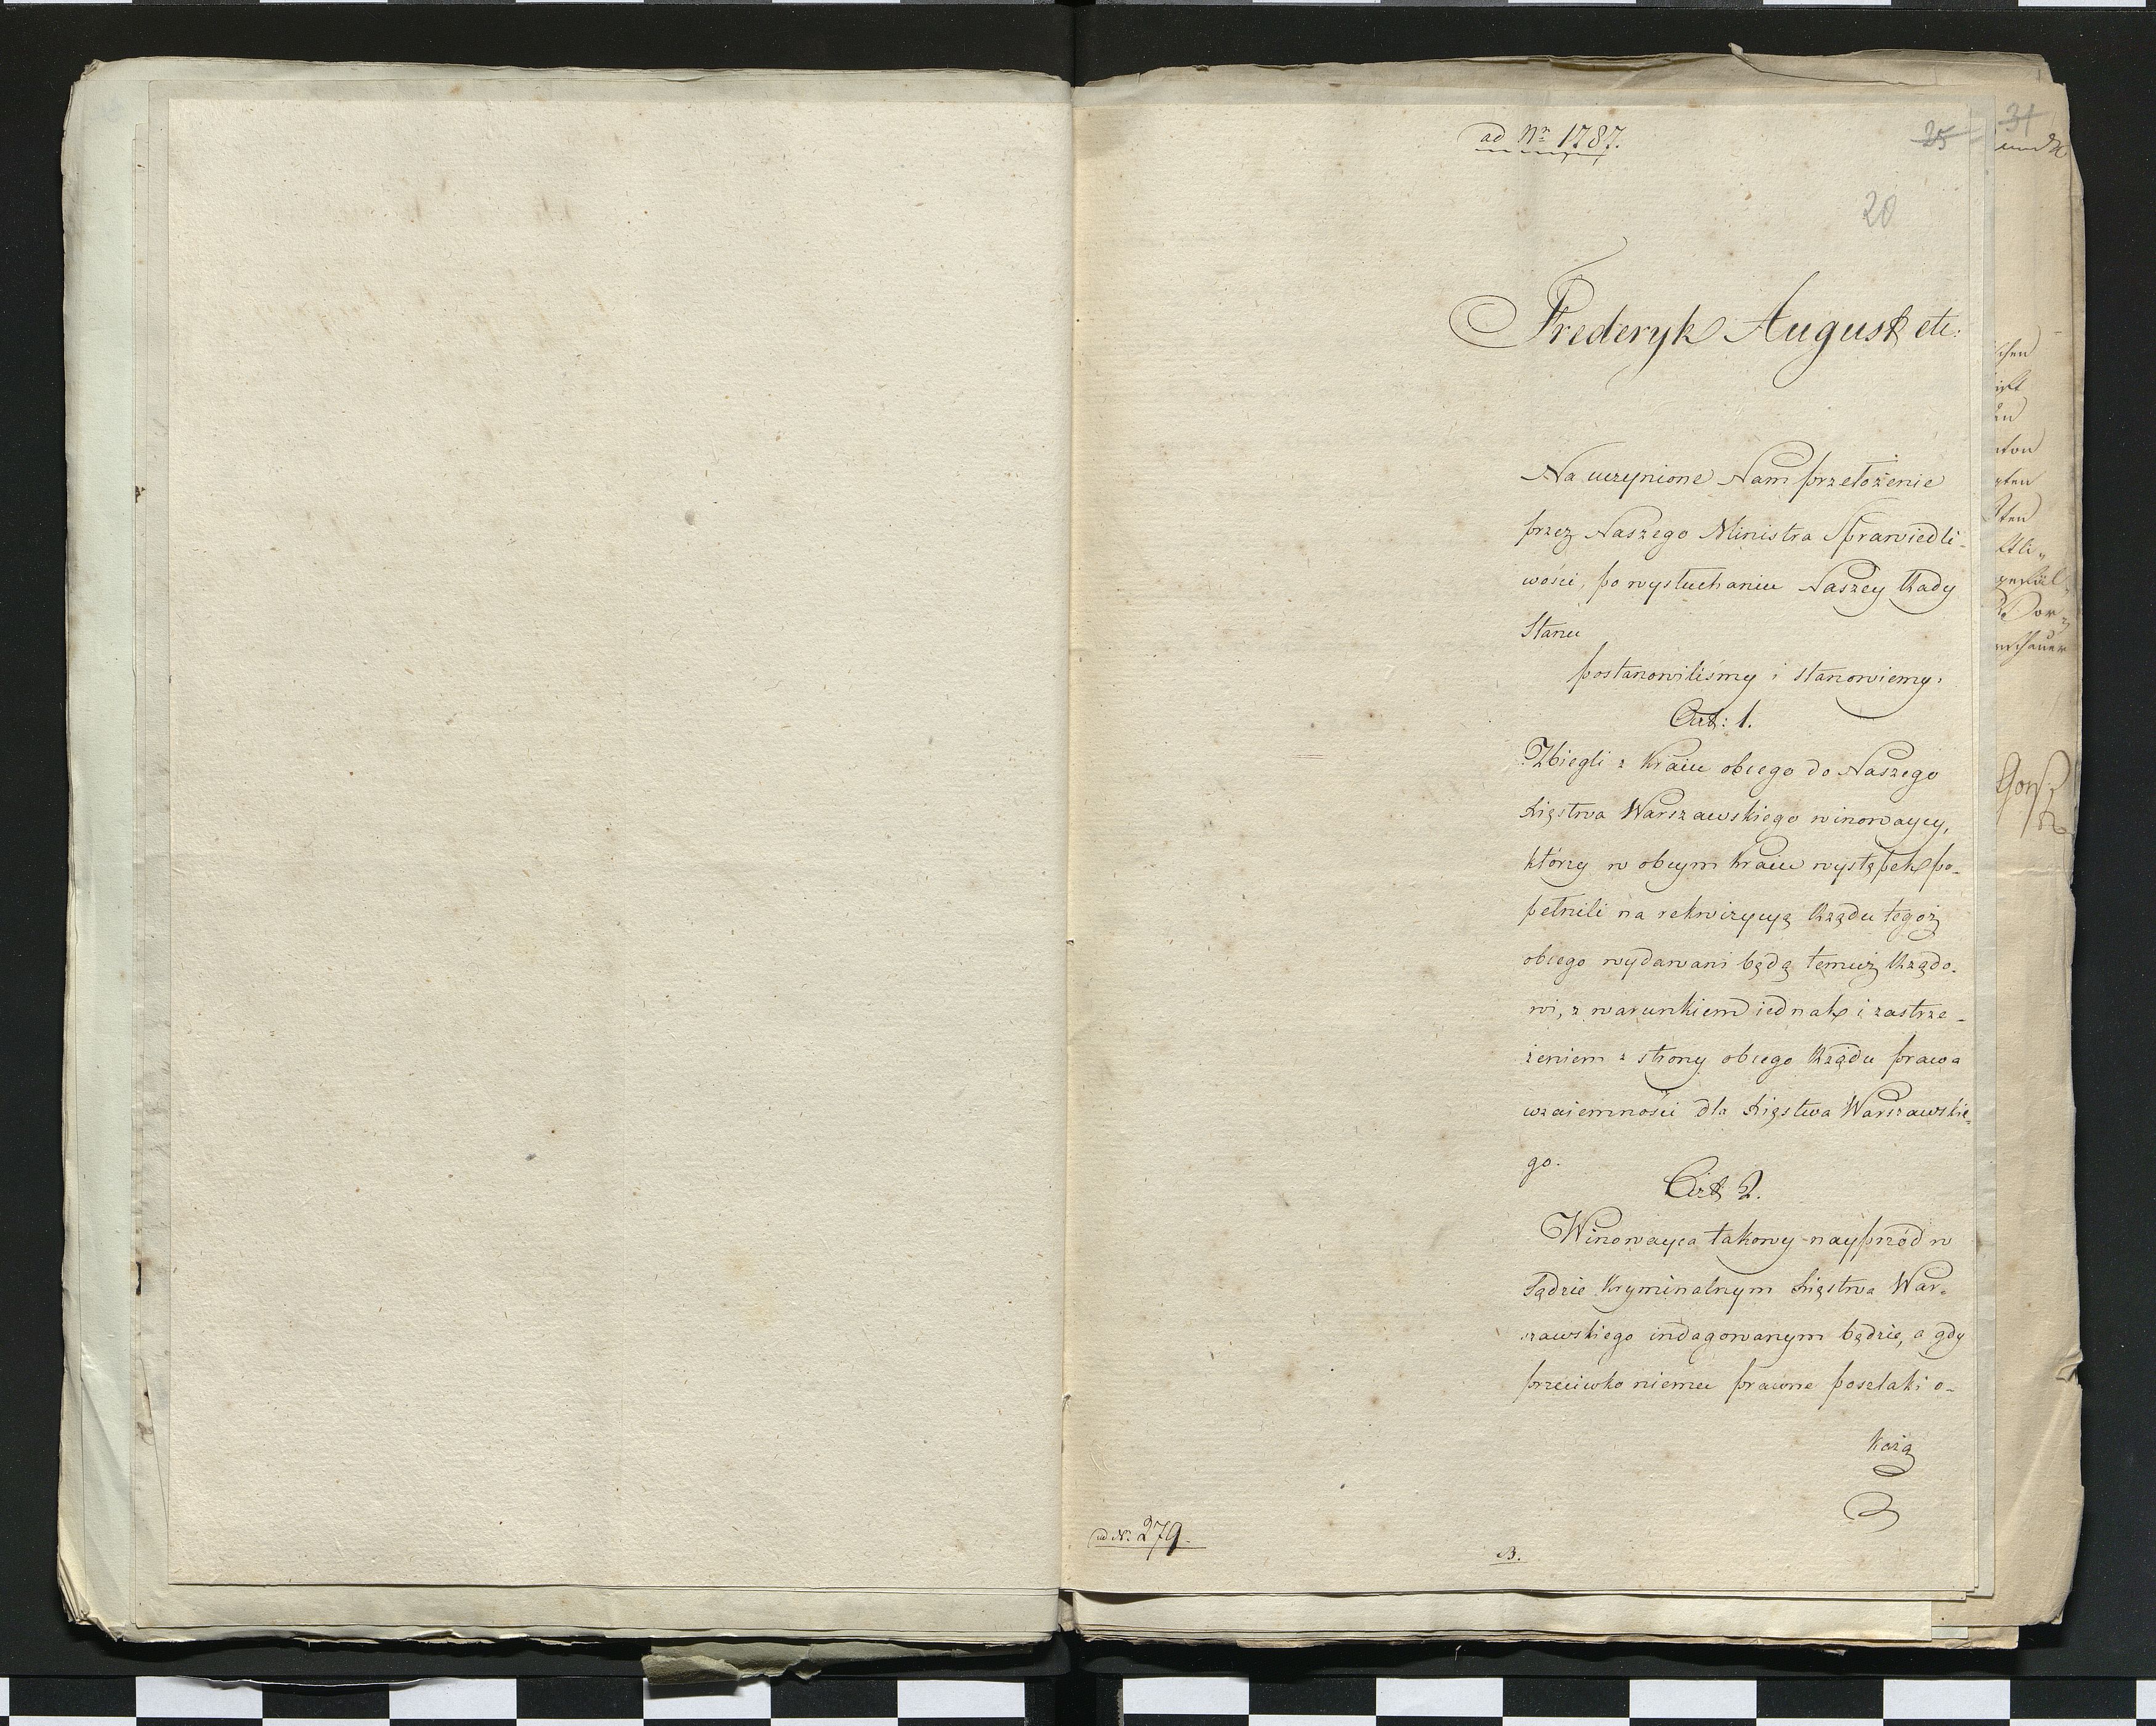 ad Nr 1787.
25
31
20
Frederyk August etc:
Na uczynione Nam przełożenie
przez Naszego Ministra Sprawiedli-
wości, po wysłuchaniu Naszey Rady
Stanu
postanowiliśmy i stanowiemy:
Art: 1.
Zbiegli z Kraiu obcego do Naszego
Xięstwa Warszawskiego winowaycy,
którzy w obcym kraiu występek po-
pełnili na rekwizycyą Rządu tegoż
obcego wydawani będą temuż Rządo-
wi, z warunkiem iednak i zastrze-
żeniem z strony obcego Rządu prawa
wzaiemności dla Xięstwa Warszawskie-
go.
Art 2.
Winowayca takowy nayprzód w
Sądzie Kryminalnym Xięstwa War-
szawskiego indagowanym będzie, a gdy
przeciwko niemu prawne poszlaki o-
każą
ad Nr. 279.
B.